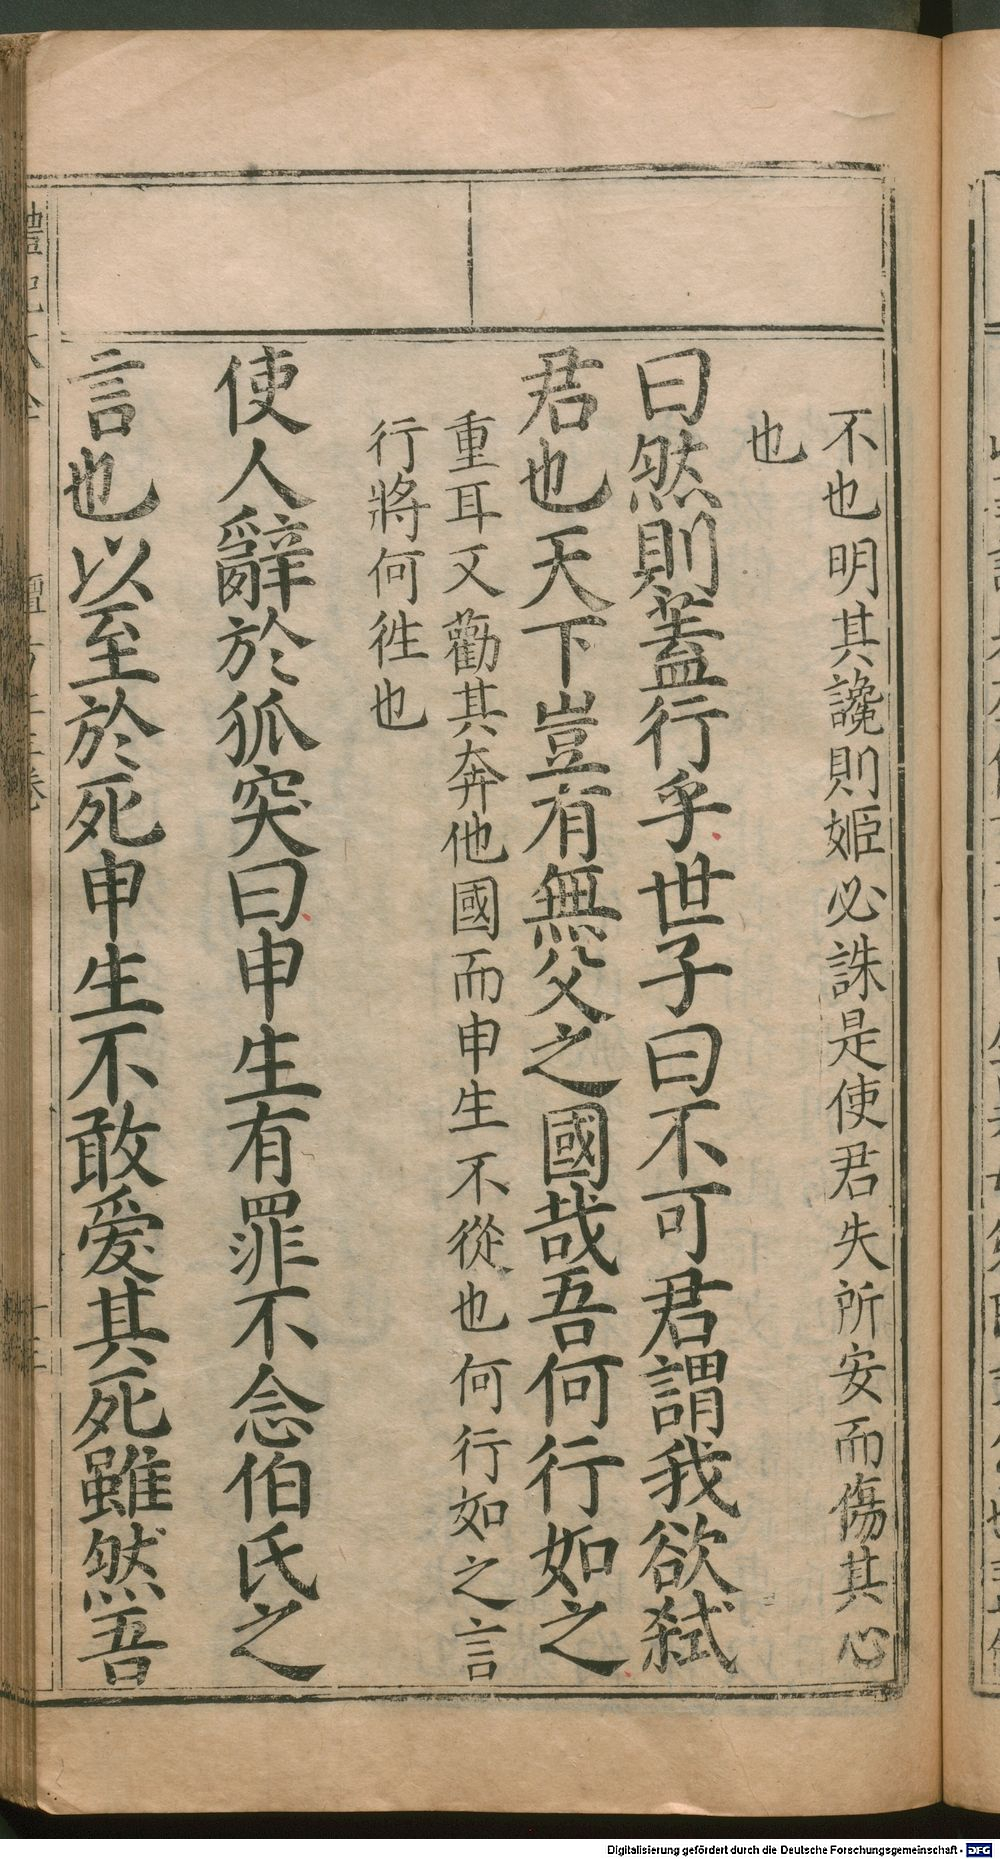 不也明其讒則姬必誅是使君失所安而傷其心
也
曰然則蓋行乎世子曰不可君謂我欲弑
君也天下豈有無父之國哉吾何行如之
重耳又勸其奔他國而申生不從也何行如之言
行將何徃也
使人辭於狐突曰申生有罪不念伯氏之
言也以至於死申生不敢爱其死雖然吾
Digitalisierung gefördert durch die Deutsche Forschungsgemeinschaft - DFG